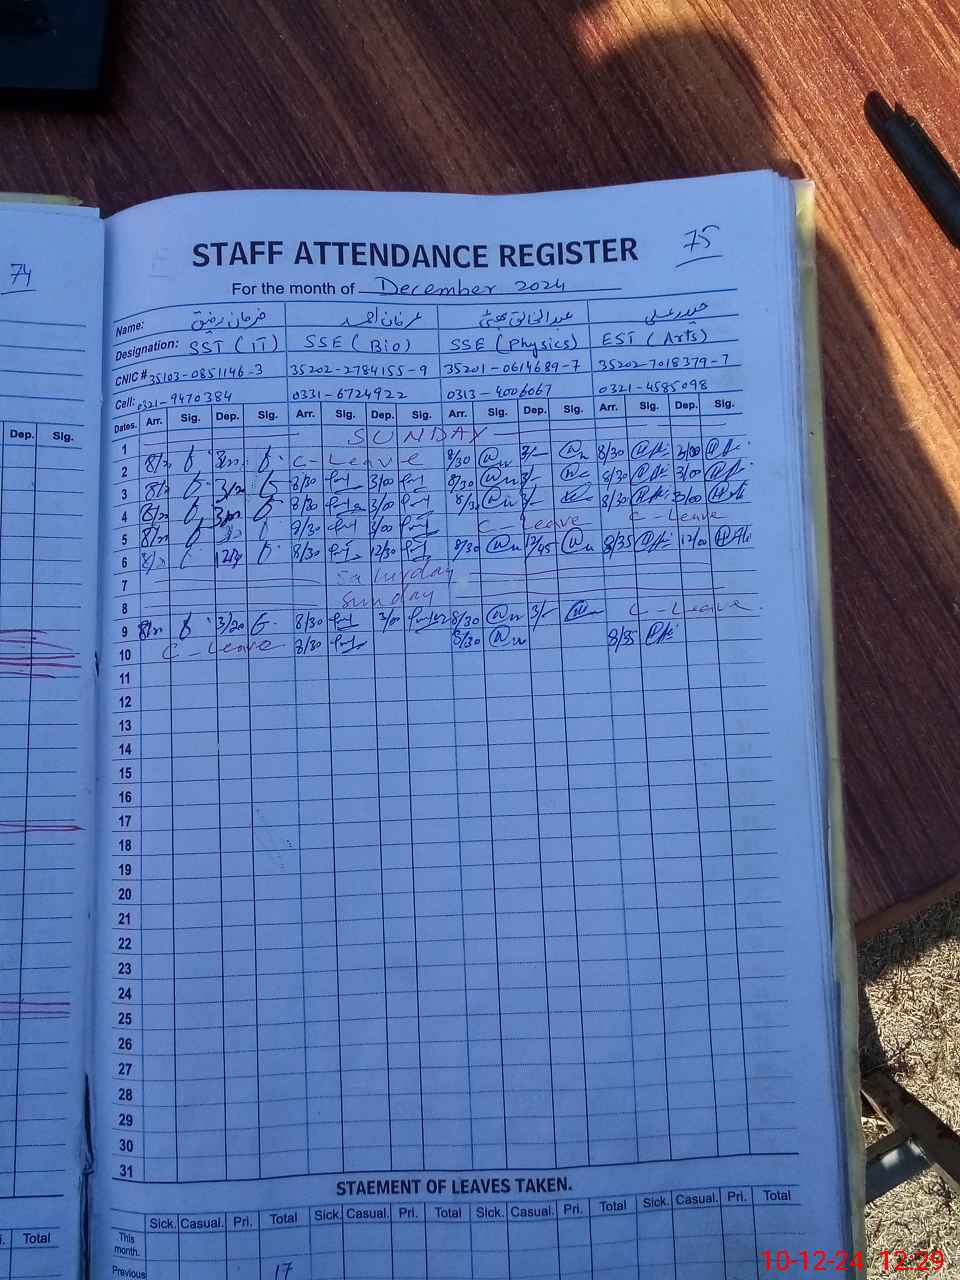 74
75
STAFF ATTENDANCE REGISTER
For the month of December 2024
Name: فرحان رفیق عرفان احمد عبدالخالق بھٹی حیدر علی
Designation: SST (IT) SSE (Bio) SSE (Physics) EST (Arts)
CNIC # 35103-0851146-3 35202-2784155-9 35201-0614689-7 35202-7018379-7
Cell: 0321-9470384 0331-6724922 0313-4006067 0321-4585098
Dep. Sig.
Dates. Arr. Sig. Dep. Sig. Arr. Sig. Dep. Sig. Arr. Sig. Dep. Sig. Arr. Sig. Dep. Sig.
1 SUNDAY
2 C-Leave 8/30 3/- 8/30 3/00
3 3/20 8/30 3/00 8/30 3/- 8/30 3/00
4 8/30 3/00 8/30 3/- 8/30 3/00
5 8/30 3/00 C-Leave C-Leave
6 12/30 8/30 12/30 8/30 12/45 8/35 12/00
7 Saturday
8 Sunday
9 3/20 8/30 3/00 8/30 3/- C-Leave.
10 C-Leave 8/30 8/30 8/35
11
12
13
14
15
16
17
18
19
20
21
22
23
24
25
26
27
28
29
30
31
STAEMENT OF LEAVES TAKEN.
Sick. Casual. Pri. Total Sick. Casual. Pri. Total Sick. Casual. Pri. Total Sick. Casual. Pri. Total
i. Total
This month.
Previous 17
10-12-24 12:29